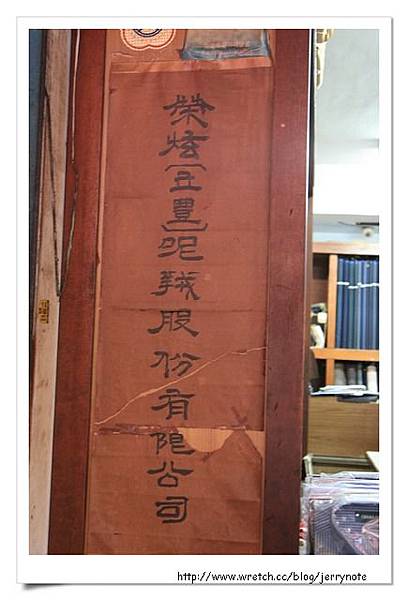 榮炫(五豊)呢羢股份有限公司
http://www.wretch.cc/blog/jerrynote